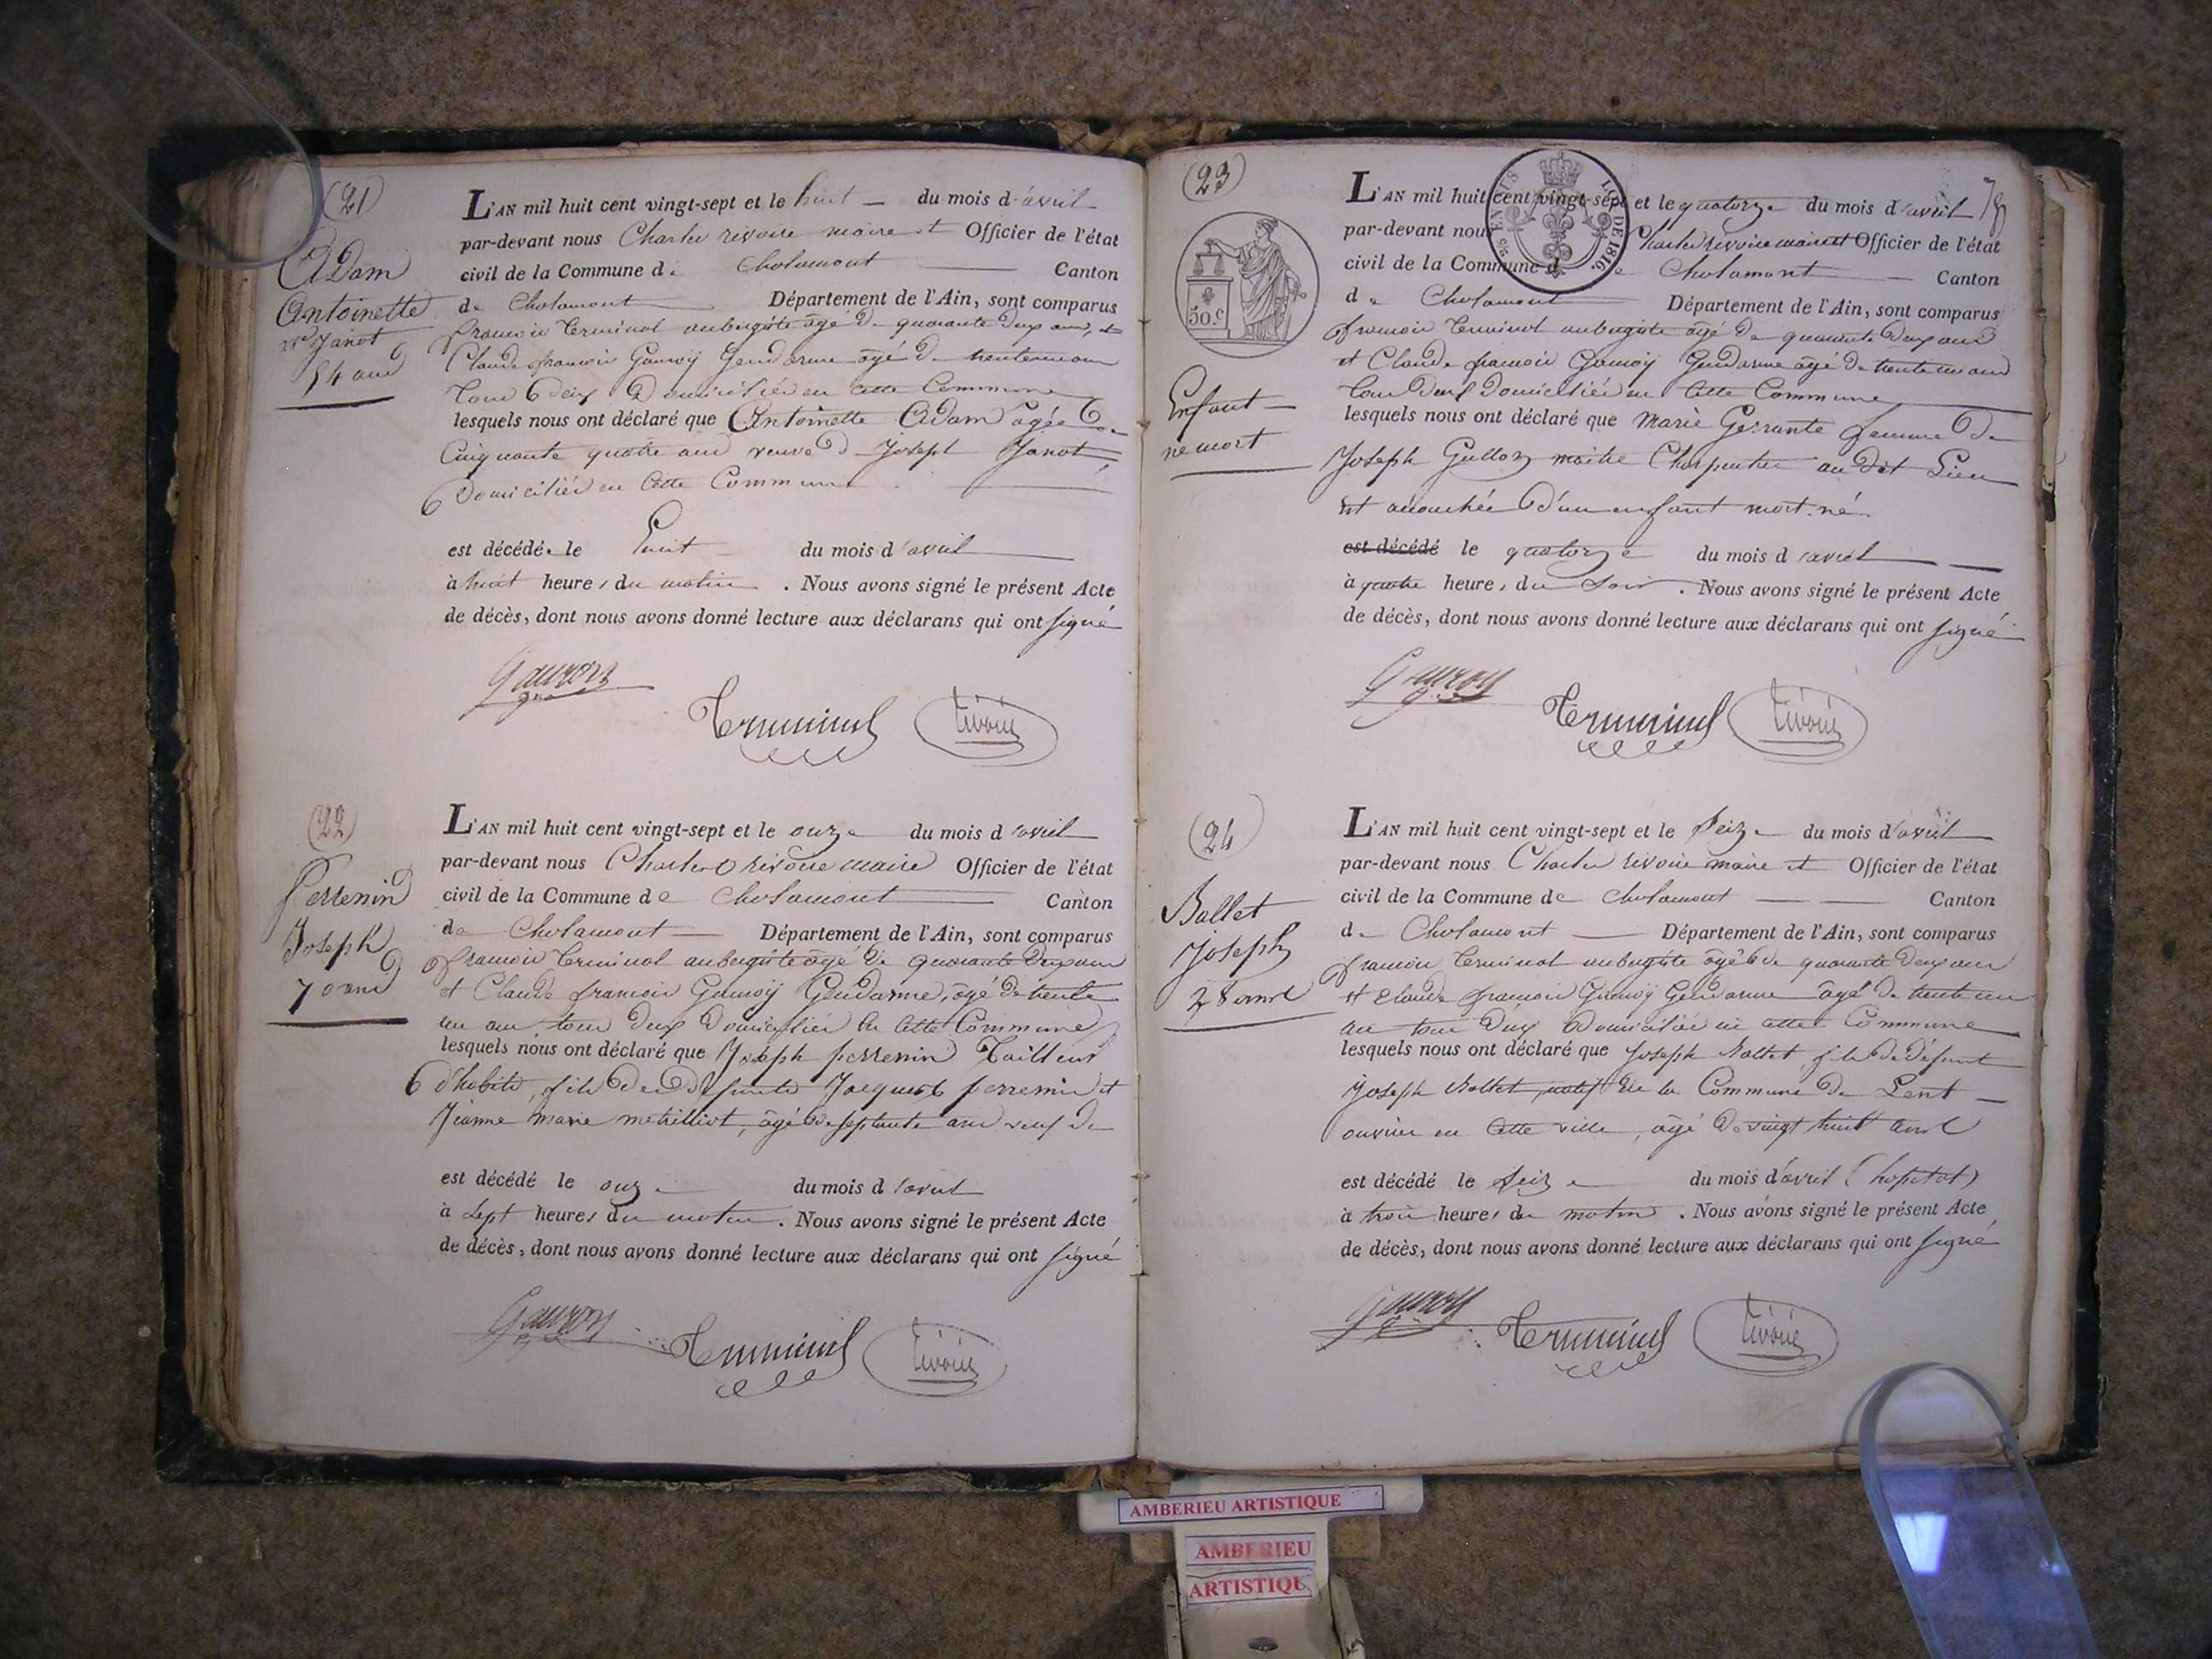 (21)
Adam
Antoinette
ve Janot
54 ans
L'AN mil huit cent vingt-sept et le huit du mois d'avril
par-devant nous Charles rivoire maire et Officier de l'état
civil de la Commune de Chalamont Canton
de Chalamont Département de l'Ain, sont comparus
françois Terminal aubergiste âgé de quarante deux ans, et
Claude françois Gauroy Gendarme âgé de trente un ans
tous deux Domiciliés en cette Commune
lesquels nous ont déclaré que Antoinette Adam âgée de
Cinquante quatre ans veuve de Joseph Janot,
Domiciliés en cette Commune
est décédée le huit du mois d'avril
à huit heures du matin. Nous avons signé le présent Acte
de décès, dont nous avons donné lecture aux déclarans qui ont signé
Gauroy
Terminal
rivoire
(22)
Perrenin
Joseph
70 ans
L'AN mil huit cent vingt-sept et le onze du mois d'avril
par-devant nous Charles rivoire maire Officier de l'état
civil de la Commune de Chalamont Canton
de Chalamont Département de l'Ain, sont comparus
françois Terminal aubergiste âgé de quarante deux ans
et Claude françois Gauroy Gendarme, âgé de trente
un ans tous deux domiciliés en cette Commune
lesquels nous ont déclaré que Joseph perrenin Tailleur
d'habits, fils de Defunts Jacques perrenin et
Jeanne marie metrilliot, âgé de septante ans veuf de
est décédé le onze du mois d'avril
à sept heures du matin. Nous avons signé le présent Acte
de décès, dont nous avons donné lecture aux déclarans qui ont signé
Gauroy
Terminal
rivoire
(23)
50.c
Enfant
né mort
LOI DE 1816.
78
L'AN mil huit cent vingt-sept et le quatorze du mois d'avril
par-devant nous Charles rivoire maire et Officier de l'état
civil de la Commune de Chalamont Canton
de Chalamont Département de l'Ain, sont comparus
françois Terminal aubergiste âgé de quarante deux ans
et Claude françois Gauroy Gendarme âgé de trente un ans
tous deux Domiciliés en cette Commune
lesquels nous ont déclaré que Marie Gerrante femme de
Joseph Guilloz maitre Charpentier au dit Lieu
est accouchée d'un enfant mort-né.
est décédé le quatorze du mois d'avril
à quatre heures du soir. Nous avons signé le présent Acte
de décès, dont nous avons donné lecture aux déclarans qui ont signé
Gauroy
Terminal
rivoire
(24)
Ballet
Joseph
28 ans
L'AN mil huit cent vingt-sept et le seize du mois d'avril
par-devant nous Charles rivoire maire et Officier de l'état
civil de la Commune de Chalamont Canton
de Chalamont Département de l'Ain, sont comparus
françois Terminal aubergiste âgé de quarante deux ans
et Claude françois Gauroy Gendarme âgé de trente un
ans tous deux Domiciliés en cette Commune
lesquels nous ont déclaré que Joseph Ballet, fils de défunt
Joseph Ballet, natif de la Commune de Lent
ouvrier en cette ville, âgé de vingt huit ans
est décédé le seize du mois d'avril (hopital)
à trois heures du matin. Nous avons signé le présent Acte
de décès, dont nous avons donné lecture aux déclarans qui ont signé
Gauroy
Terminal
rivoire
AMBERIEU ARTISTIQUE
AMBERIEU
ARTISTIQU